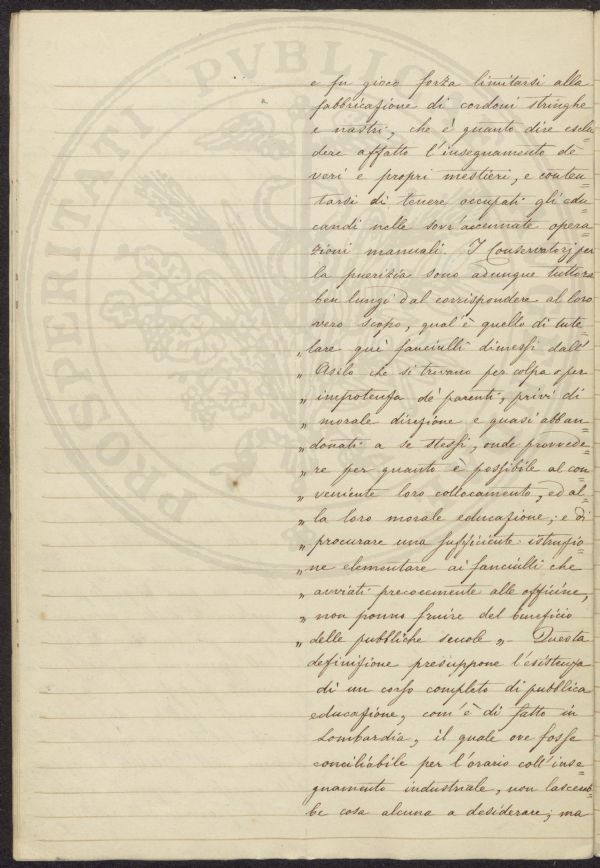 PROSPERITATI PVBLIC
e fu gioco forza limitarsi alla
fabbricazione di cordoni stringhe
e nastri, che è quanto dire esclu=
dere affatto l'insegnamento de'
veri e propri mestieri, e conten=
tarsi di tenere occupati gli edu=
candi nelle sovr'accennate opera=
zioni manuali. I Conservatorj per
la puerizia sono adunque tuttora
ben lungi dal corrispondere al loro
vero scopo, qual'è quello di tute=
„ lare quei fanciulli dimessi dall'
„ Asilo che si trovano per colpa o per
„ impotenza de' parenti, privi di
„ morale direzione e quasi abban=
„ donati a se stessi, onde provvede=
„ re per quanto è possibile al con=
„ veniente loro collocamento, ed al=
„ la loro morale educazione; e di
„ procurare una sufficiente istruzio=
„ ne elementare ai fanciulli che
„ avviati precocemente alle officine,
„ non ponno fruire del beneficio
„ delle pubbliche scuole „. Questa
definizione presuppone l'esistenza
di un corso completo di pubblica
educazione, com'è di fatto in
Lombardia, il quale ove fosse
conciliabile per l'orario coll'inse=
gnamento industriale, non lascereb=
be cosa alcuna a desiderare; ma